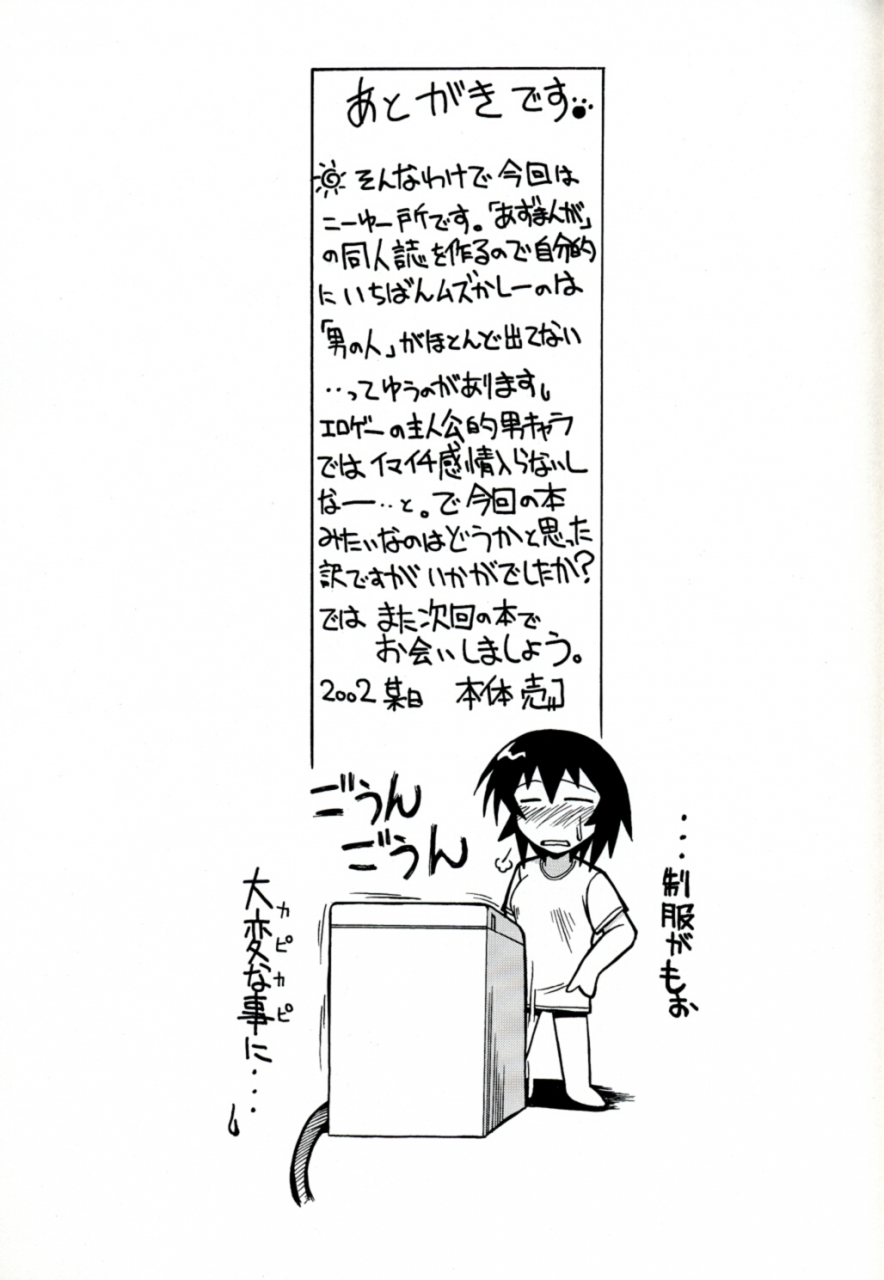 あとがきです
そんなわけで今回は
こーゆー所です。「あずまんが」
の同人誌を作るので自分的
にいちばんムズかしーのは
「男の人」がほとんど出てない
‥ってゆうのがあります。
エロゲーの主人公的男キャラ
ではイマイチ感情入らないし
なー‥と。で今回の本
みたいなのはどうかと思った
訳ですがいかがでしたか?
では また次回の本で
お会いしましょう。
2002 某日 本体 売
ごうん
ごうん
・・・制服がもぉ
カピカピ
大変な事に・・・